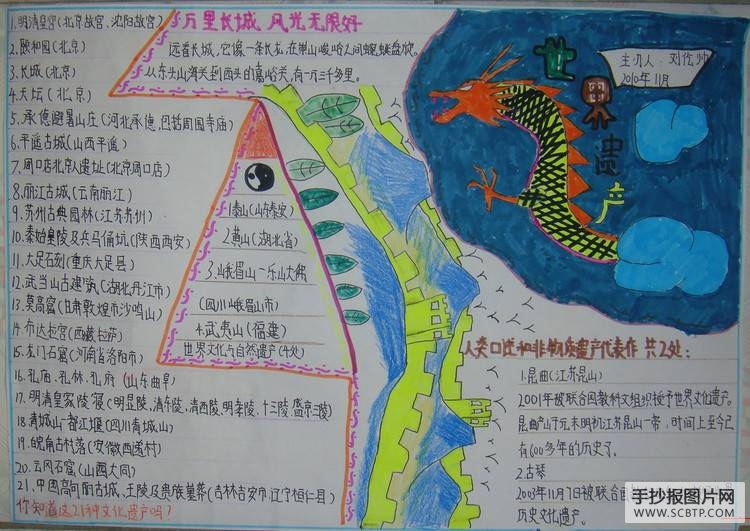 1.明清皇宫(北京故宫、沈阳故宫)
2.颐和园(北京)
3.长城(北京)
4.天坛(北京)
5.承德避暑山庄(河北承德,包括周围寺庙)
6.平遥古城(山西平遥)
7.周口店北京人遗址(北京周口店)
8.丽江古城(云南丽江)
9.苏州古典园林(江苏苏州)
10.秦始皇陵及兵马俑坑(陕西西安)
11.大足石刻(重庆大足县)
12.武当山古建筑(湖北丹江市)
13.莫高窟(甘肃敦煌市沙鸣山)
14.布达拉宫(西藏拉萨)
15.龙门石窟(河南省洛阳市)
16.孔庙.孔林.孔府(山东曲阜)
17.明清皇家陵寝(明显陵、清东陵、清西陵、明孝陵、十三陵、盛京三陵)
18.青城山-都江堰(四川青城山)
19.皖南古村落(安徽西递村)
20.云冈石窟(山西大同)
21.中国高句丽古城、王陵及贵族墓葬(吉林吉安市,辽宁桓仁县)
你知道这21种文化遗产吗?
万里长城 风光无限好
远看长城,它像一条长龙,在崇山峻岭间蜿蜒盘旋。
从东头山海关到西头的嘉峪关,有一万三千多里。
1泰山(山东泰安)
2.黄山(湖北省)
3.峨眉山-乐山大佛
(四川峨眉山市)
4.武夷山(福建)
世界文化与自然遗产(4处)
世界遗产
主办人:
2010年11月
人类口述和非物质遗产代表作 共2处:
1.昆曲(江苏昆山)
2001年被联合国教科文组织授予世界文化遗产。
昆曲产于元末明初江苏昆山一带,时间上至今已
有600多年的历史了。
2.古琴
2003年11月7日被联合国
历史文化遗产。
手抄报图片网
WWW.SCBTP.COM